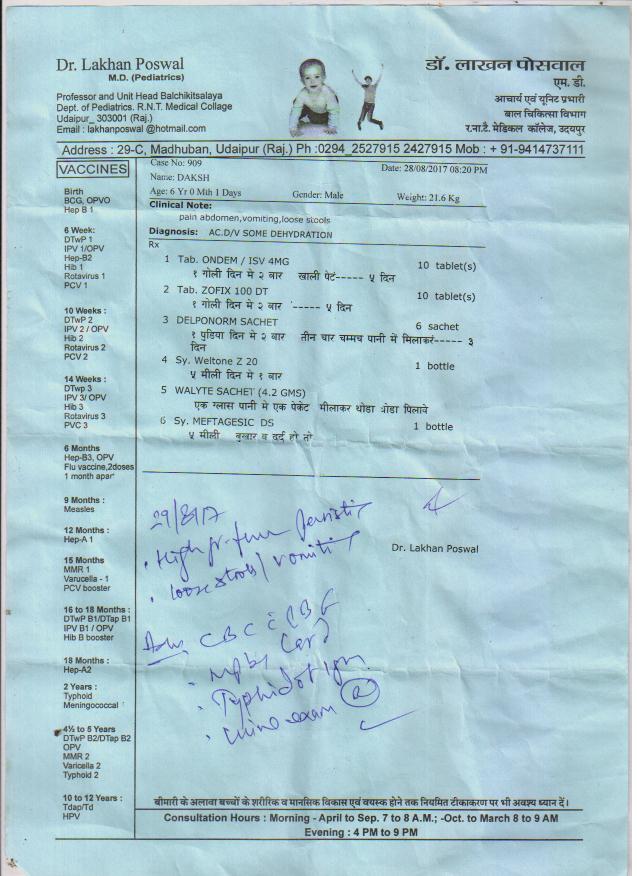 Dr. Lakhan Poswal
M.D. (Pediatrics)
Professor and Unit Head Balchikitsalaya
Dept. of Pediatrics. R.N.T. Medical Collage
Udaipur_ 303001 (Raj.)
Email : lakhanposwal @hotmail.com
डॉ. लाखन पोसवाल
एम. डी.
आचार्य एवं यूनिट प्रभारी
बाल चिकित्सा विभाग
र.ना.टै. मेडिकल कॉलेज, उदयपुर
Address : 29-C, Madhuban, Udaipur (Raj.) Ph :0294_2527915 2427915 Mob : + 91-9414737111
VACCINES
Birth
BCG, OPVO
Hep B 1
6 Week:
DTwP 1
IPV 1/OPV
Hep-B2
Hib 1
Rotavirus 1
PCV 1
10 Weeks :
DTwP 2
IPV 2 / OPV
Hib 2
Rotavirus 2
PCV 2
14 Weeks :
DTwp 3
IPV 3/ OPV
Hib 3
Rotavirus 3
PVC 3
6 Months
Hep-B3, OPV
Flu vaccine,2doses
1 month apar
9 Months :
Measles
12 Months :
Hep-A 1
15 Months
MMR 1
Varucella - 1
PCV booster
16 to 18 Months :
DTwP B1/DTap B1
IPV B1 / OPV
Hib B booster
18 Months :
Hep-A2
2 Years :
Typhoid
Meningococcal
4½ to 5 Years
DTwP B2/DTap B2
OPV
MMR 2
Varicella 2
Typhoid 2
10 to 12 Years :
Tdap/Td
HPV
Case No: 909
Date: 28/08/2017 08:20 PM
Name: DAKSH
Age: 6 Yr 0 Mth 1 Days Gender: Male Weight: 21.6 Kg
Clinical Note:
pain abdomen,vomiting,loose stools
Diagnosis: AC.D/V SOME DEHYDRATION
Rx
1 Tab. ONDEM / ISV 4MG 10 tablet(s)
१ गोली दिन मे २ बार खाली पेट----- ५ दिन
2 Tab. ZOFIX 100 DT 10 tablet(s)
१ गोली दिन मे २ बार ----- ५ दिन
3 DELPONORM SACHET 6 sachet
१ पुडिया दिन मे २ बार तीन चार चम्मच पानी में मिलाकर----- ३
दिन
4 Sy. Weltone Z 20 1 bottle
५ मीली दिन मे १ बार
5 WALYTE SACHET (4.2 GMS)
एक ग्लास पानी मे एक पेकेंट मीलाकर थोडा थोडा पिलावे
6 Sy. MEFTAGESIC DS 1 bottle
५ मीली बुखार व दर्द हो तो
Dr. Lakhan Poswal
29/8/17
loose stools/ vomiting
CBC
Card
Typhidot Igm
Urine exam
बीमारी के अलावा बच्चों के शरीरिक व मानसिक विकास एवं वयस्क होने तक नियमित टीकाकरण पर भी अवश्य ध्यान दें।
Consultation Hours : Morning - April to Sep. 7 to 8 A.M.; -Oct. to March 8 to 9 AM
Evening : 4 PM to 9 PM